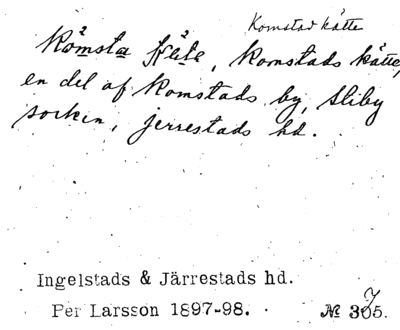 Komstad kätte
Komsta käte, Komstads kätte,
en del af Komstads by, Stiby
socken, jerrestads hd.
Ingelstads & Järrestads hd.
Per Larsson 1897-98. № 375.